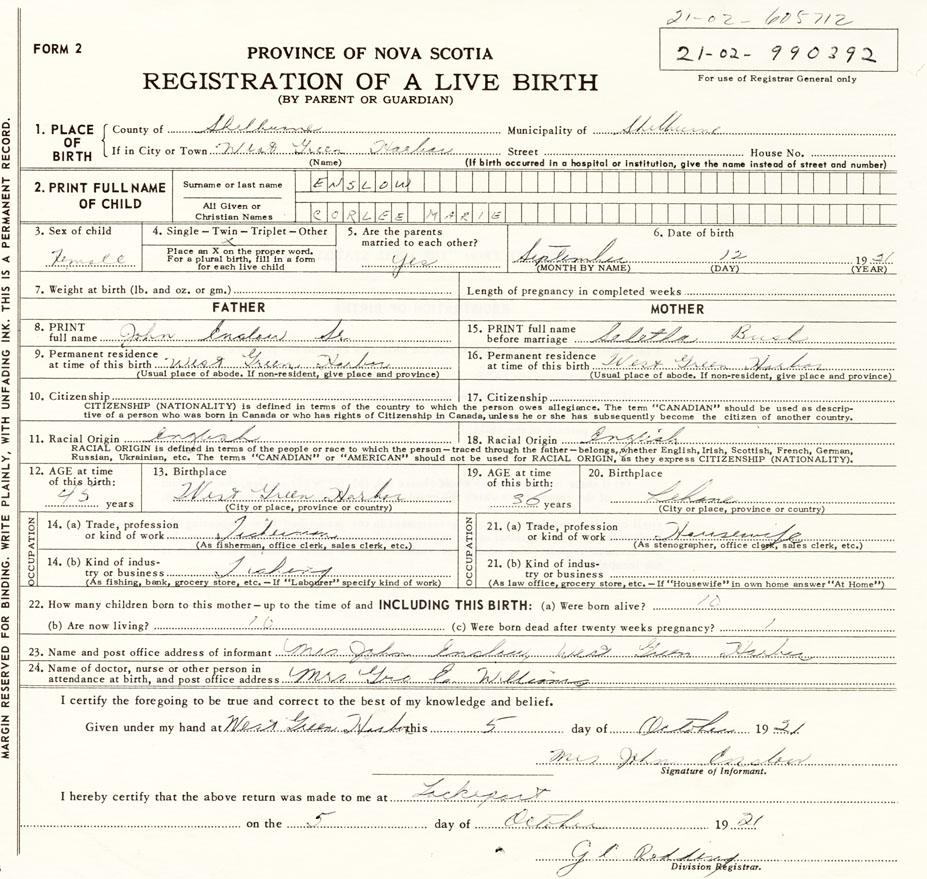 21-02-605712
FORM 2
21-02-990392
For use of Registrar General only
PROVINCE OF NOVA SCOTIA
REGISTRATION OF A LIVE BIRTH
(BY PARENT OR GUARDIAN)
MARGIN RESERVED FOR BINDING. WRITE PLAINLY, WITH UNFADING INK. THIS IS A PERMANENT RECORD.
1. PLACE OF BIRTH
County of Shelburne Municipality of Shelburne
If in City or Town West Green Harbor Street House No.
(Name) (If birth occurred in a hospital or institution, give the name instead of street and number)
2. PRINT FULL NAME OF CHILD
Surname or last name ENSLOW
All Given or Christian Names CORLEE MARIE
3. Sex of child Female
4. Single – Twin – Triplet – Other
X
Place an X on the proper word.
For a plural birth, fill in a form
for each live child
5. Are the parents
married to each other?
Yes
6. Date of birth
September 12 1921
(MONTH BY NAME) (DAY) (YEAR)
7. Weight at birth (lb. and oz. or gm.) Length of pregnancy in completed weeks
FATHER
MOTHER
8. PRINT full name John Enslow Sr.
15. PRINT full name before marriage Bush
9. Permanent residence at time of this birth West Green Harbor
(Usual place of abode. If non-resident, give place and province)
16. Permanent residence at time of this birth West Green Harbor
(Usual place of abode. If non-resident, give place and province)
10. Citizenship 17. Citizenship
CITIZENSHIP (NATIONALITY) is defined in terms of the country to which the person owes allegiance. The term "CANADIAN" should be used as descrip-
tive of a person who was born in Canada or who has rights of Citizenship in Canada, unless he or she has subsequently become the citizen of another country.
11. Racial Origin English 18. Racial Origin English
RACIAL ORIGIN is defined in terms of the people or race to which the person – traced through the father – belongs, whether English, Irish, Scottish, French, German,
Russian, Ukrainian, etc. The terms "CANADIAN" or "AMERICAN" should not be used for RACIAL ORIGIN, as they express CITIZENSHIP (NATIONALITY).
12. AGE at time of this birth: 45 years
13. Birthplace
West Green Harbor
(City or place, province or country)
19. AGE at time of this birth: 36 years
20. Birthplace
(City or place, province or country)
OCCUPATION
14. (a) Trade, profession or kind of work Fisherman
(As fisherman, office clerk, sales clerk, etc.)
14. (b) Kind of indus-try or business Fishing
(As fishing, bank, grocery store, etc. – If "Labourer" specify kind of work)
OCCUPATION
21. (a) Trade, profession or kind of work Housewife
(As stenographer, office clerk, sales clerk, etc.)
21. (b) Kind of indus-try or business
(As law office, grocery store, etc. – If "Housewife" in own home answer "At Home")
22. How many children born to this mother – up to the time of and INCLUDING THIS BIRTH: (a) Were born alive? 10
(b) Are now living? 10 (c) Were born dead after twenty weeks pregnancy? 1
23. Name and post office address of informant Mrs John Enslow West Green Harbor
24. Name of doctor, nurse or other person in
attendance at birth, and post office address Mrs Geo E. Williams
I certify the foregoing to be true and correct to the best of my knowledge and belief.
Given under my hand at West Green Harbor this 5 day of October 1921
Mrs John Enslow
Signature of Informant.
I hereby certify that the above return was made to me at Lockeport
on the 5 day of October 1921
Division Registrar.